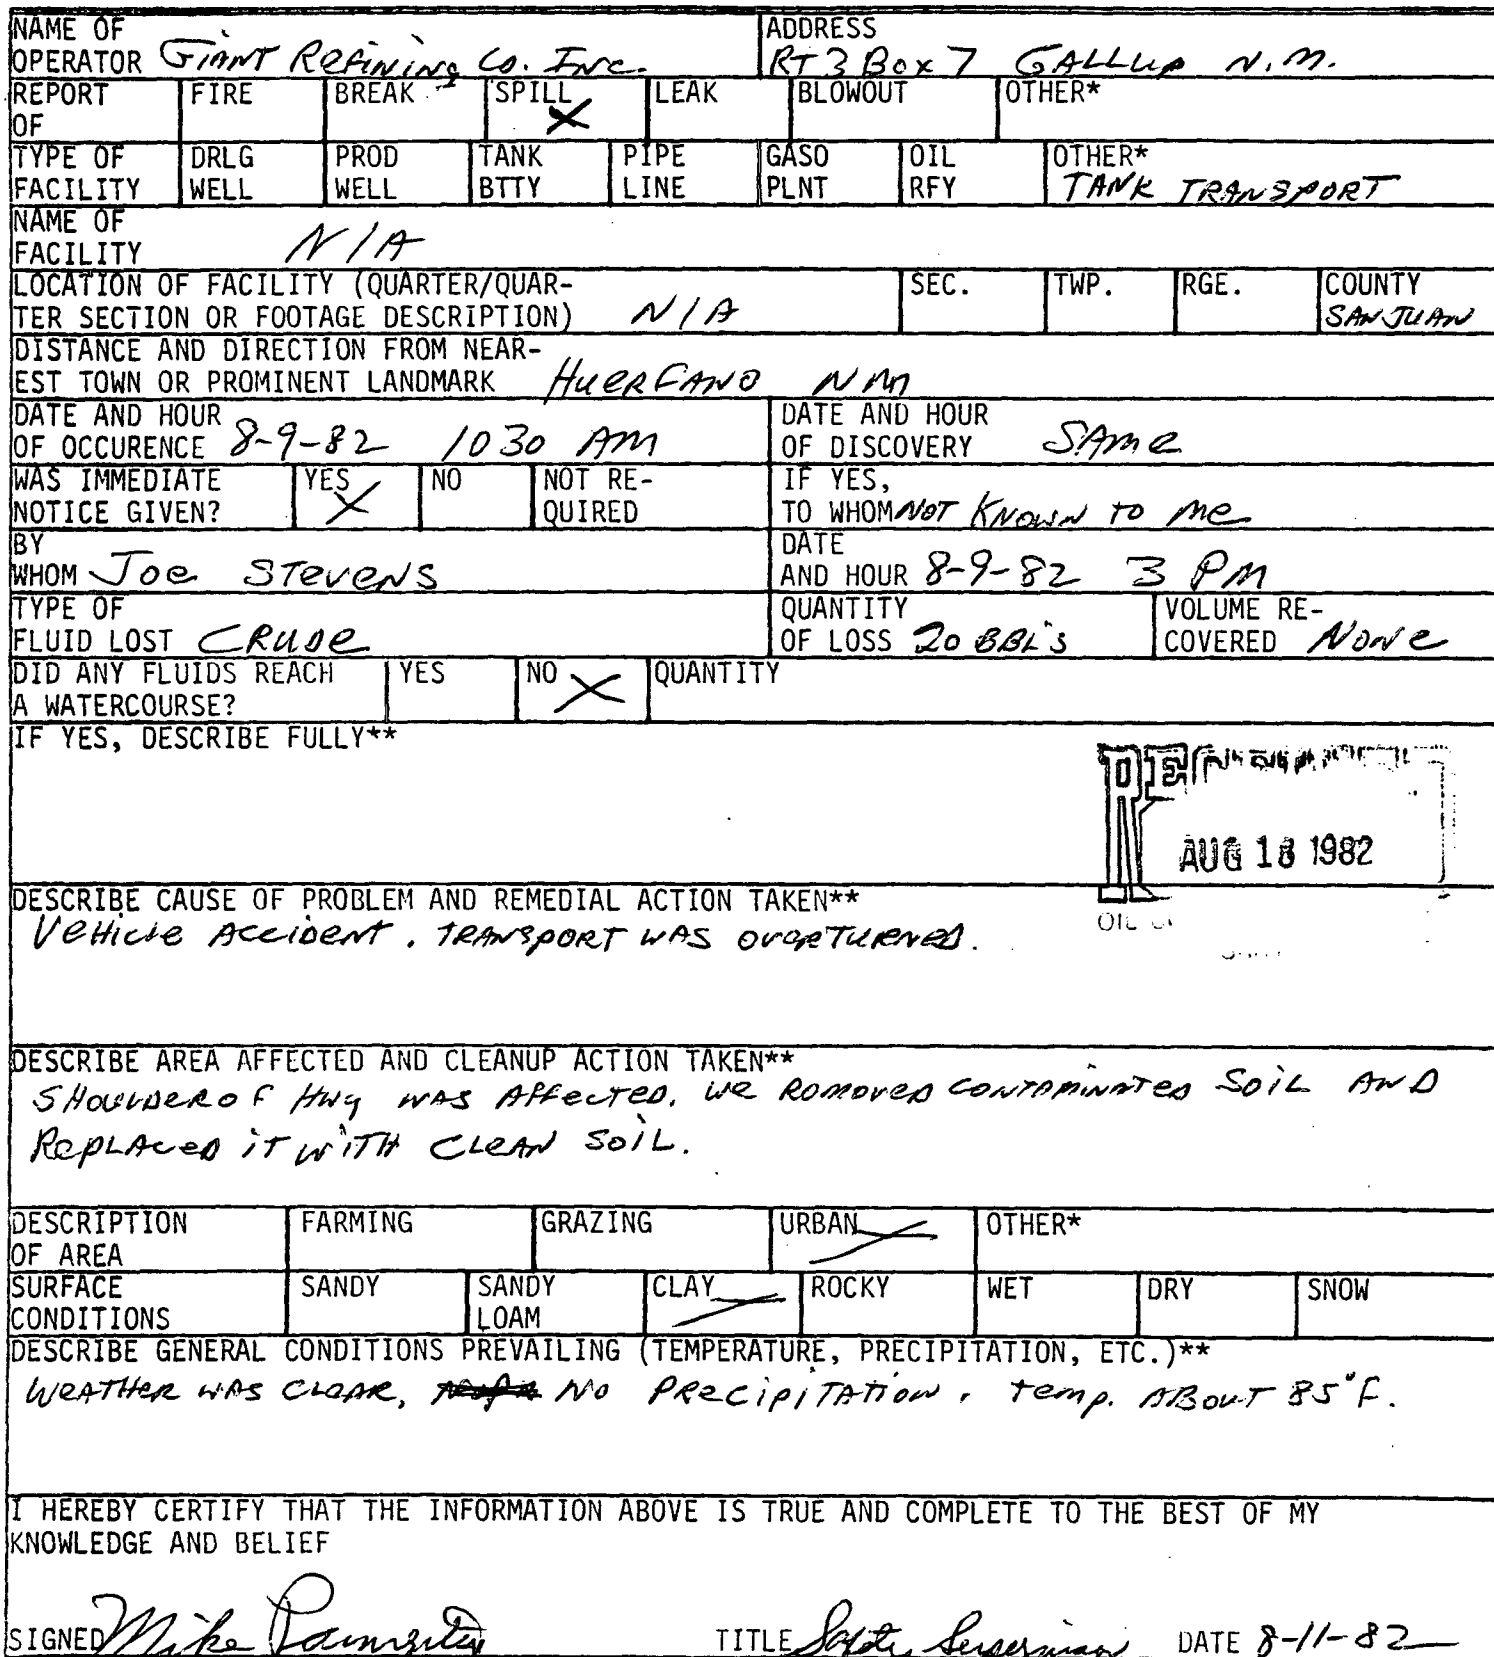 NAME OF
OPERATOR GIANT REFINING CO. INC.
ADDRESS
RT 3 BOX 7 GALLUP N.M.
REPORT
OF
FIRE
BREAK
SPILL X
LEAK
BLOWOUT
OTHER*
TYPE OF
FACILITY
DRLG
WELL
PROD
WELL
TANK
BTTY
PIPE
LINE
GASO
PLNT
OIL
RFY
OTHER*
TANK TRANSPORT
NAME OF
FACILITY N/A
LOCATION OF FACILITY (QUARTER/QUAR-
TER SECTION OR FOOTAGE DESCRIPTION) N/A
SEC.
TWP.
RGE.
COUNTY
SAN JUAN
DISTANCE AND DIRECTION FROM NEAR-
EST TOWN OR PROMINENT LANDMARK HUERFANO NM
DATE AND HOUR
OF OCCURENCE 8-9-82 1030 AM
DATE AND HOUR
OF DISCOVERY SAME
WAS IMMEDIATE
NOTICE GIVEN?
YES X
NO
NOT RE-
QUIRED
IF YES,
TO WHOM NOT KNOWN TO ME
BY
WHOM JOE STEVENS
DATE
AND HOUR 8-9-82 3 PM
TYPE OF
FLUID LOST CRUDE
QUANTITY
OF LOSS 20 BBL'S
VOLUME RE-
COVERED NONE
DID ANY FLUIDS REACH
A WATERCOURSE?
YES
NO X
QUANTITY
IF YES, DESCRIBE FULLY**
AUG 18 1982
OIL
DESCRIBE CAUSE OF PROBLEM AND REMEDIAL ACTION TAKEN**
VEHICLE ACCIDENT. TRANSPORT WAS OVERTURNED.
DESCRIBE AREA AFFECTED AND CLEANUP ACTION TAKEN**
SHOULDER OF HWY WAS AFFECTED. WE REMOVED CONTAMINATED SOIL AND
REPLACED IT WITH CLEAN SOIL.
DESCRIPTION
OF AREA
FARMING
GRAZING
URBAN
OTHER*
SURFACE
CONDITIONS
SANDY
SANDY
LOAM
CLAY
ROCKY
WET
DRY
SNOW
DESCRIBE GENERAL CONDITIONS PREVAILING (TEMPERATURE, PRECIPITATION, ETC.)**
WEATHER WAS CLEAR, NO PRECIPITATION. TEMP. ABOUT 85°F.
I HEREBY CERTIFY THAT THE INFORMATION ABOVE IS TRUE AND COMPLETE TO THE BEST OF MY
KNOWLEDGE AND BELIEF
SIGNED Mike
TITLE Safety
DATE 8-11-82